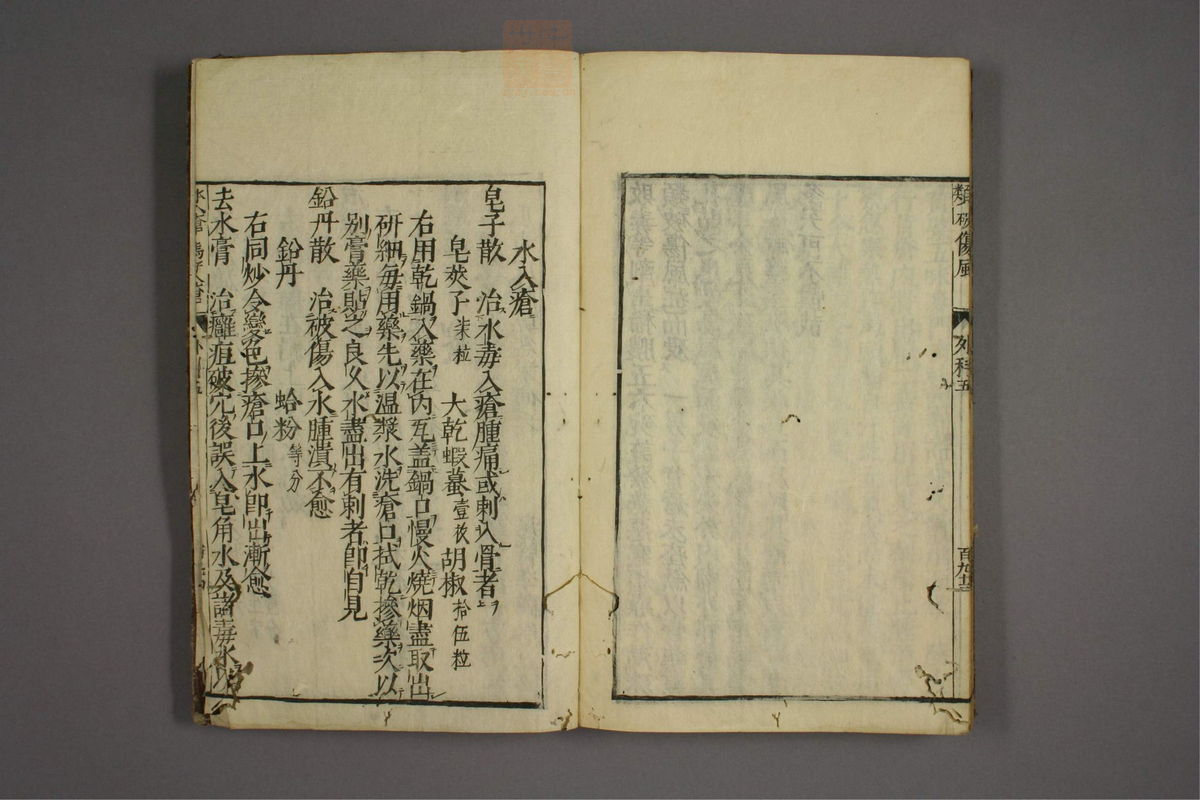 類破傷風
外科五
水入瘡
皂子散　治水毒入瘡腫痛或刺入骨者
皂莢子柒粒　大乾蝦蟇壹枚　胡椒拾伍粒
右用乾鍋入藥在内瓦盖鍋口慢火燒烟盡取出
研細每用藥先以温漿水洗瘡口拭乾摻藥次以
别膏藥貼之良久水盡出有刺者即自見
鉛丹散　治破傷入水腫潰不愈
鉛丹　蛤粉等分
右同炒令變色摻瘡口上水即出漸愈
去水膏　治癰疽破穴後誤入皂角水及諸毒水以